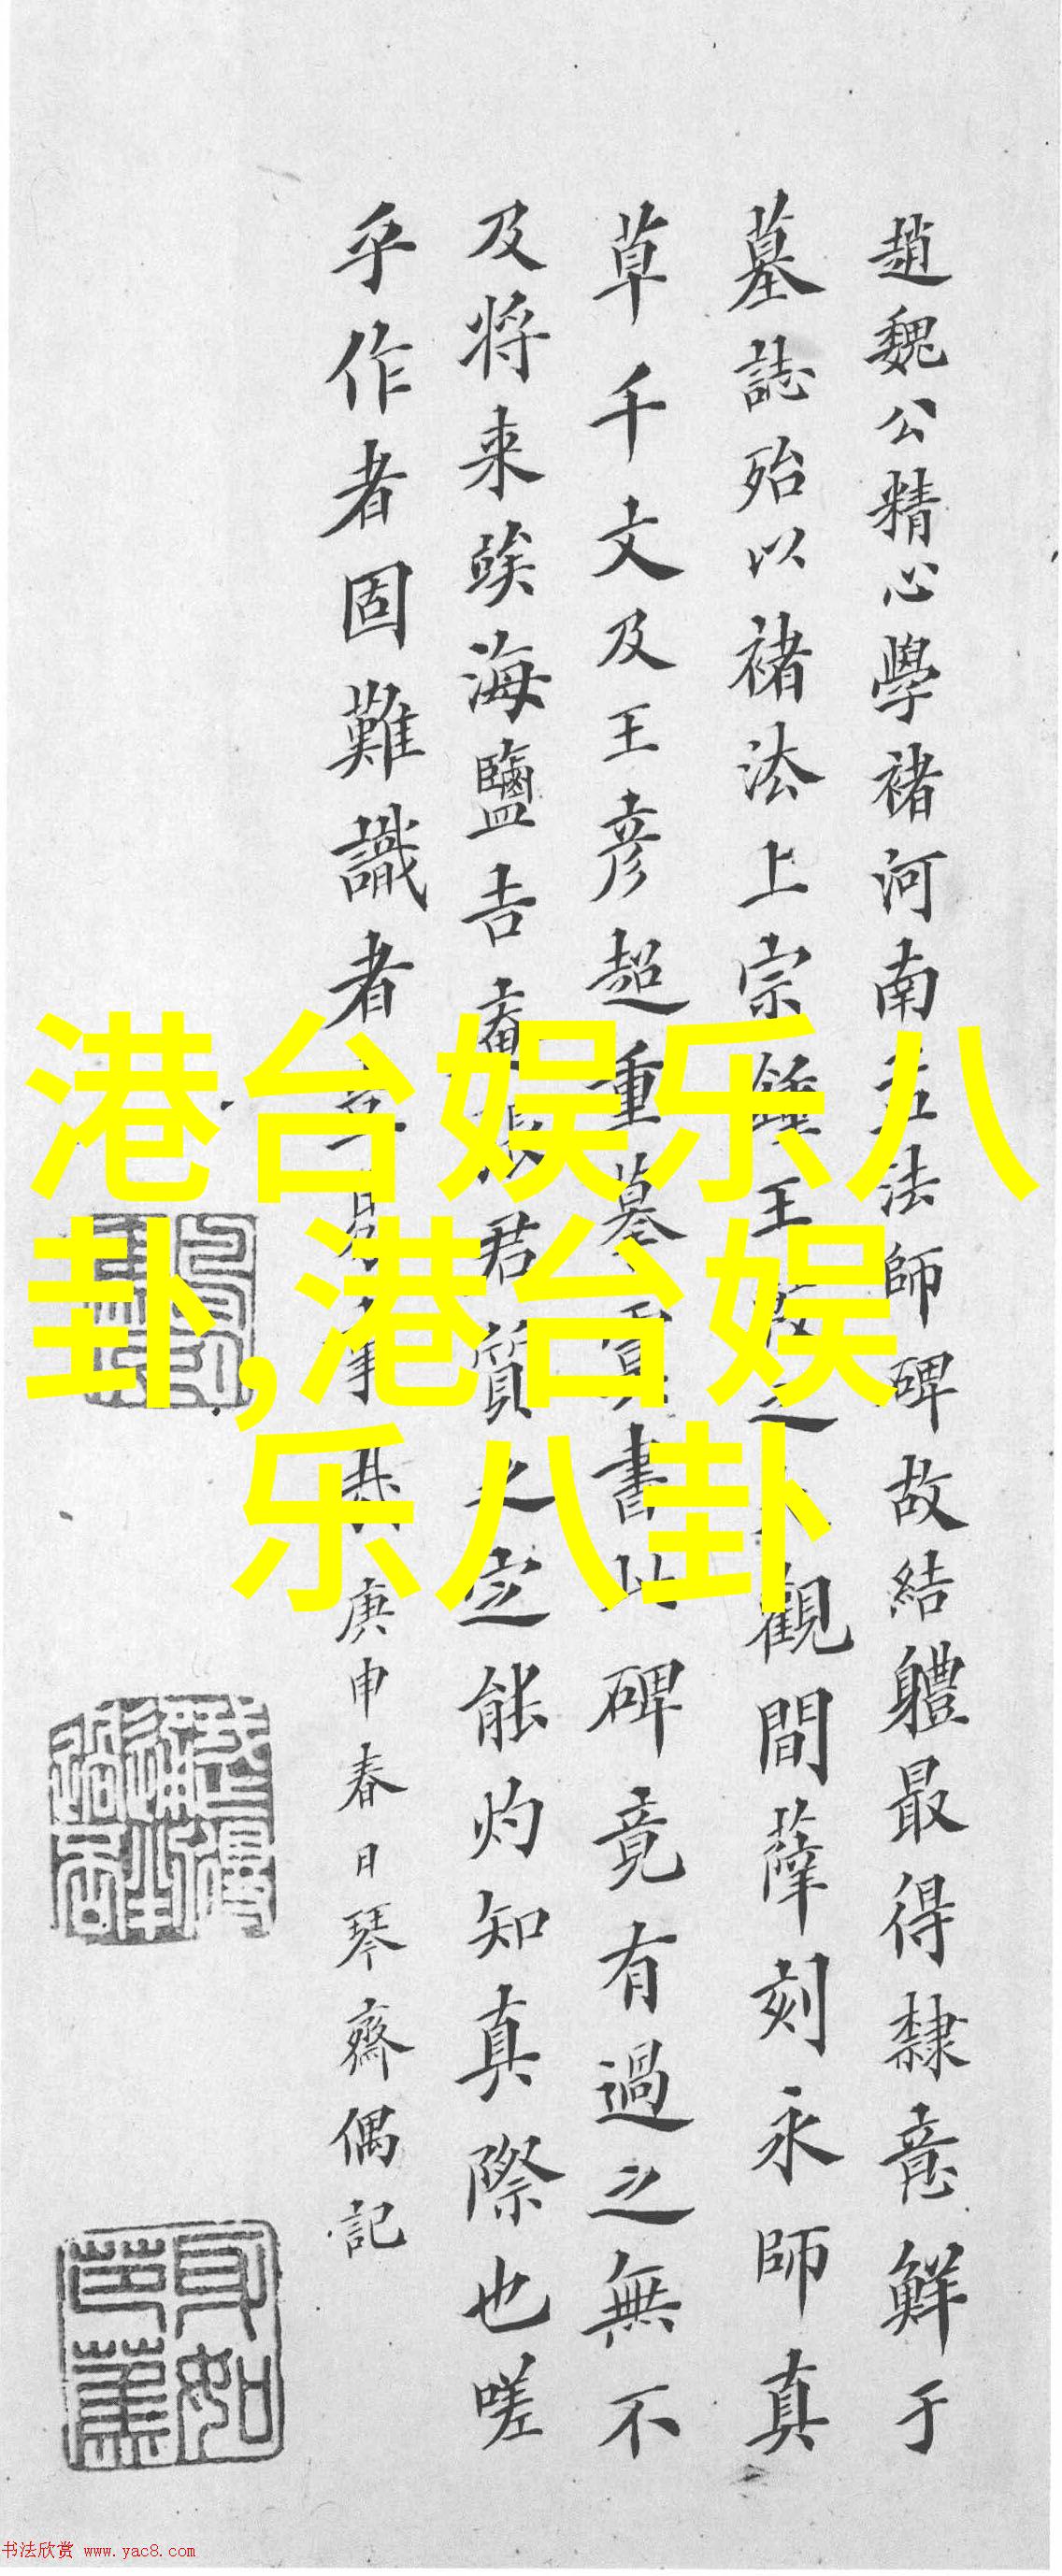 趙魏公精心學褚河南孟法師碑故結軆最得隸意鮮于
墓誌殆以褚法上宗鍾王故之觀間薛刻永師真
草千文及王彦超重墓真書此碑竟有過之無不
及將来俟海鹽吉菴張君質之定能灼知真際也嗟
乎作者固難識者庚申春日琴齋偶記
港台娱乐八
卦,港台娱
乐八卦
书法欣赏 www.yac8.com